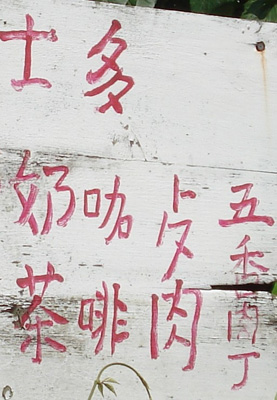 士多
五香肉丁
歺肉
咖啡
奶茶